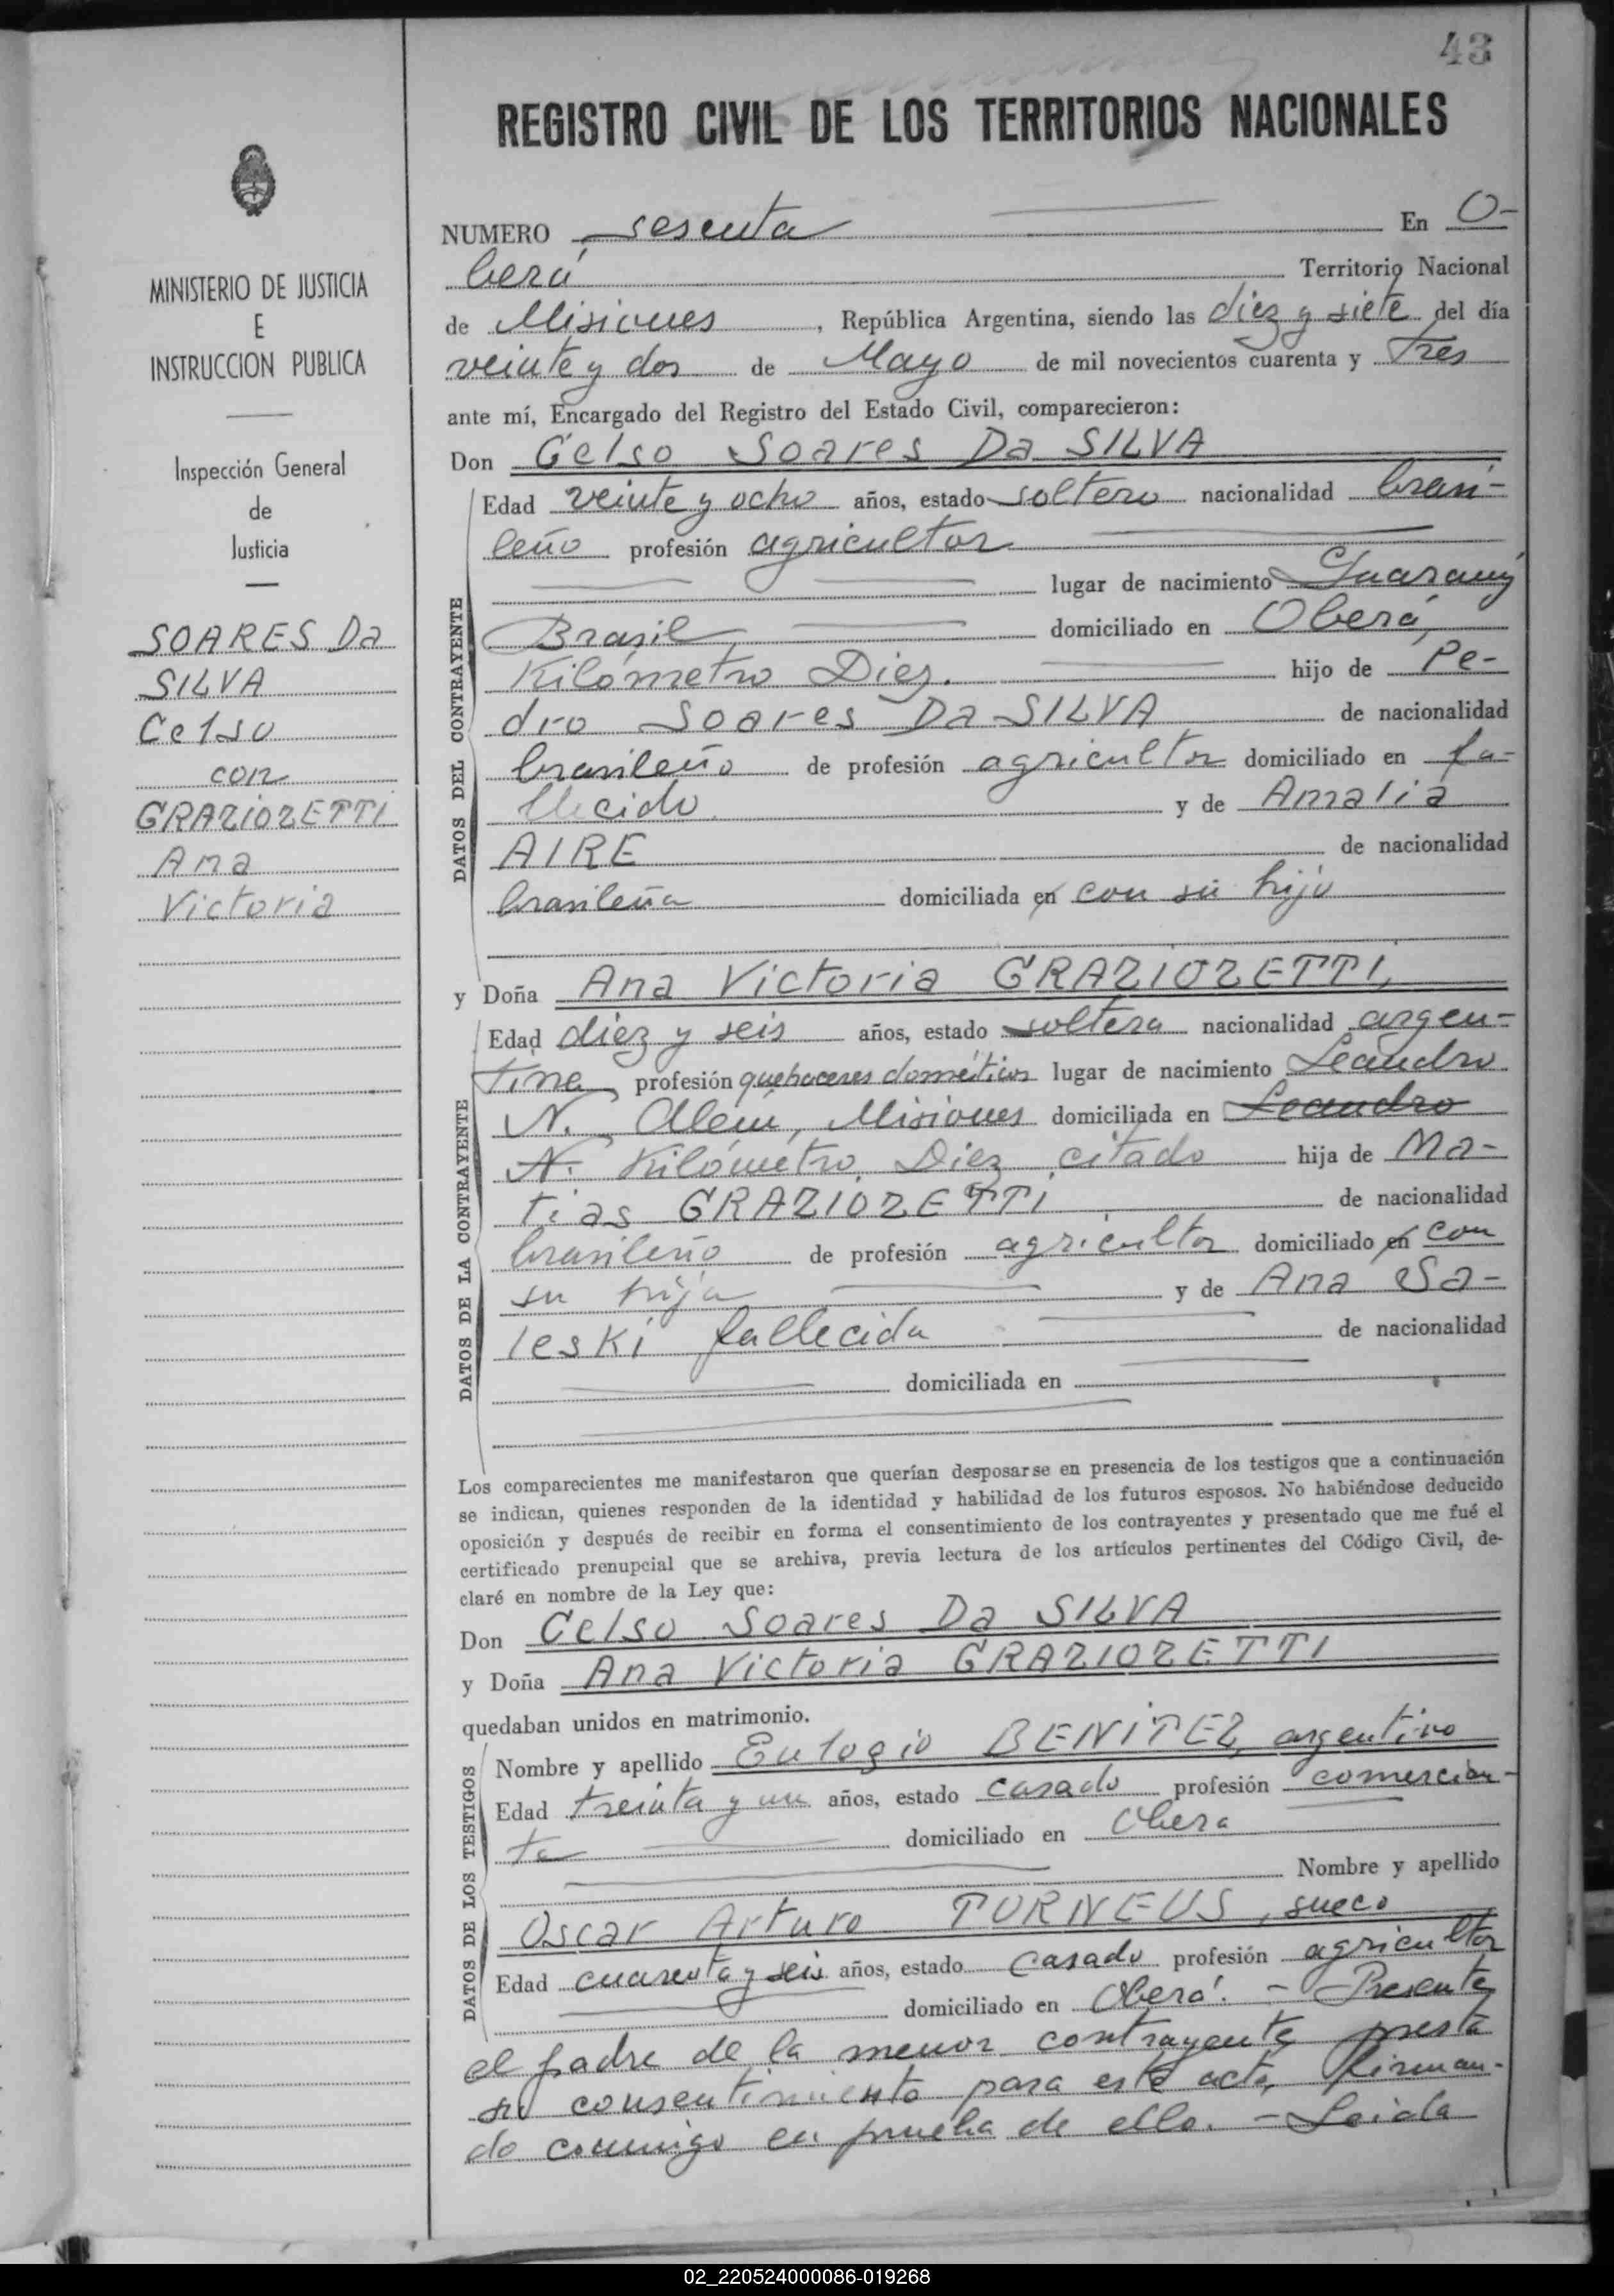 43
REGISTRO CIVIL DE LOS TERRITORIOS NACIONALES
MINISTERIO DE JUSTICIA
E
INSTRUCCION PUBLICA
Inspección General
de
Justicia
SOARES Da
SILVA
Celso
con
GRAZIOZETTI
Ana
Victoria
NUMERO sesenta En O-
berá Territorio Nacional
de Misiones, República Argentina, siendo las diez y siete del día
veinte y dos de Mayo de mil novecientos cuarenta y tres
ante mí, Encargado del Registro del Estado Civil, comparecieron:
Don Celso Soares Da SILVA
DATOS DEL CONTRAYENTE
Edad veinte y ocho años, estado soltero nacionalidad brasi-
leño profesión agricultor
lugar de nacimiento Guarany
Brasil domiciliado en Oberá,
Kilómetro Diez. hijo de Pe-
dro Soares Da SILVA de nacionalidad
brasileño de profesión agricultor domiciliado en fa-
llecido. y de Amalia
AIRE de nacionalidad
brasileña domiciliada en con su hijo
y Doña Ana Victoria GRAZIOZETTI,
DATOS DE LA CONTRAYENTE
Edad diez y seis años, estado soltera nacionalidad argen-
tina profesión quehaceres domésticos lugar de nacimiento Leandro
N. Alem, Misiones domiciliada en Leandro
N. Kilómetro Diez citado hija de Ma-
tias GRAZIOZETTI de nacionalidad
brasileño de profesión agricultor domiciliado en con
su hija y de Ana Sa-
leski fallecida de nacionalidad
domiciliada en
Los comparecientes me manifestaron que querían desposarse en presencia de los testigos que a continuación
se indican, quienes responden de la identidad y habilidad de los futuros esposos. No habiéndose deducido
oposición y después de recibir en forma el consentimiento de los contrayentes y presentado que me fué el
certificado prenupcial que se archiva, previa lectura de los artículos pertinentes del Código Civil, de-
claré en nombre de la Ley que:
Don Celso Soares Da SILVA
y Doña Ana Victoria GRAZIOZETTI
quedaban unidos en matrimonio.
DATOS DE LOS TESTIGOS
Nombre y apellido Eulogio BENITEZ, argentino
Edad treinta y un años, estado casado profesión comercian-
te domiciliado en Obera
Nombre y apellido
Oscar Arturo TORNEUS, sueco
Edad cuarenta y seis años, estado casado profesión agricultor
domiciliado en Oberá. - Presente
el padre de la menor contrayente presta
su consentimiento para este acto, firman-
do conmigo en prueba de ello. - Leida
02_220524000086-019268